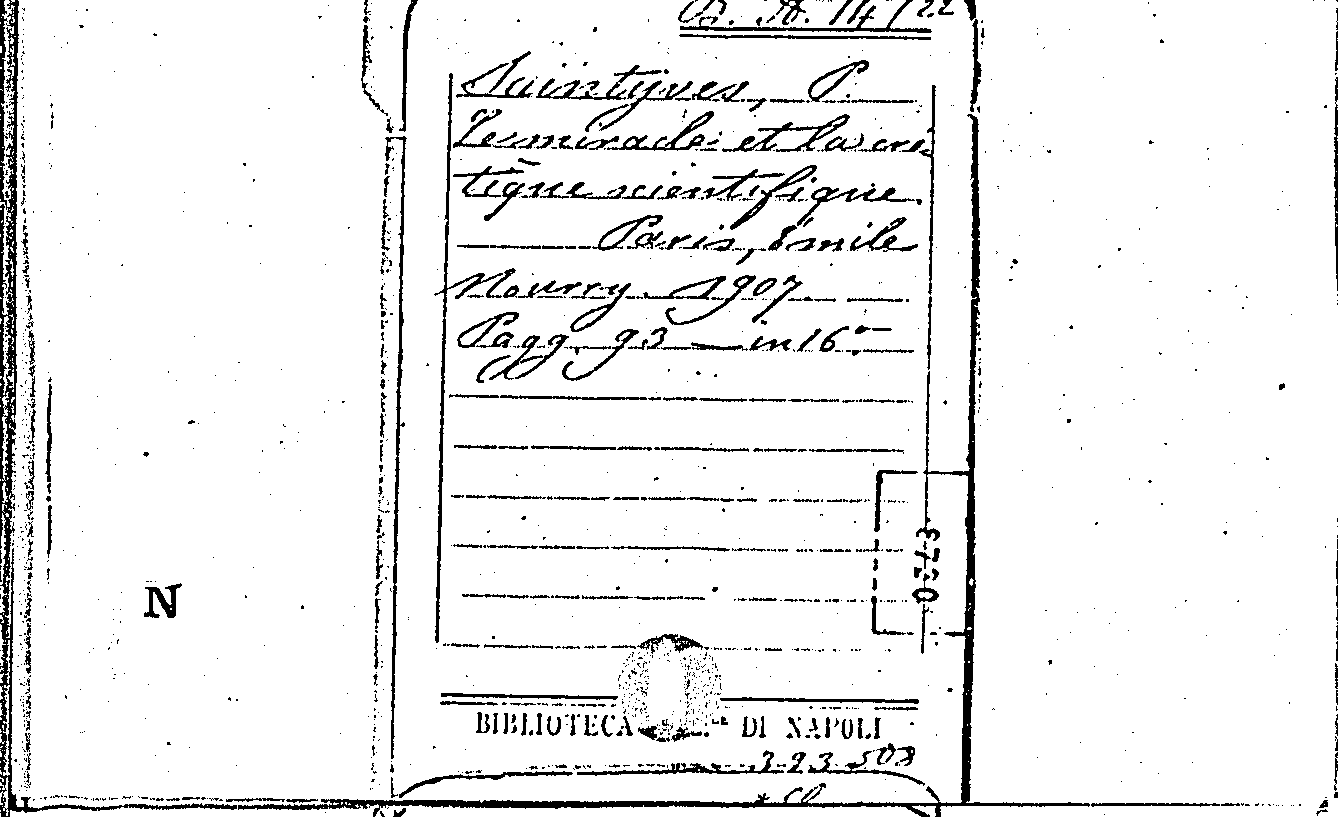 B. A. 14/22
Saintyves, P.
Le miracle et la cri-
tique scientifique.
Paris, Émile
Nourry. 1907.
Pagg. 93 — in 16º
N
BIBLIOTECA DI NAPOLI
393508